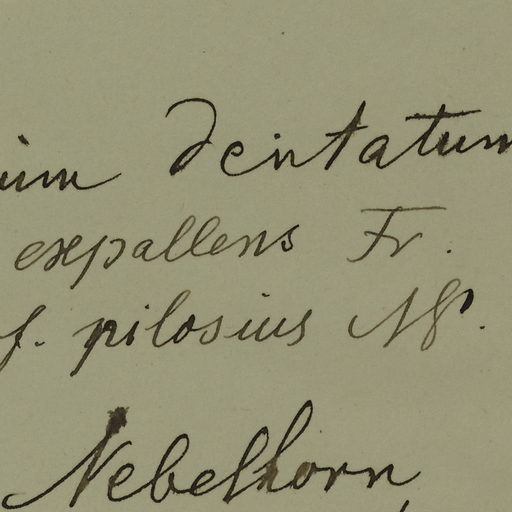 ium dentatum
expallens Fr.
f. pilosius NP.
Nebelhorn,